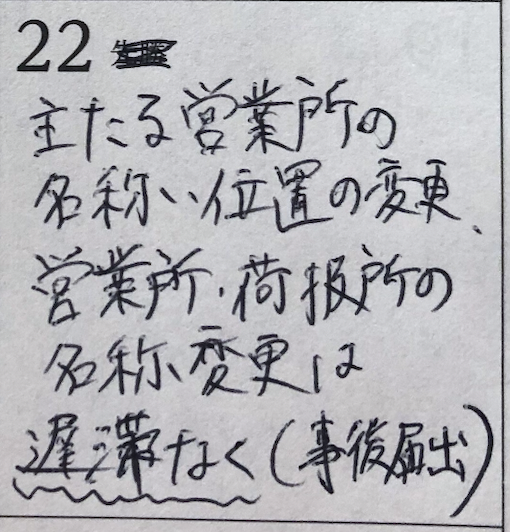 22
主たる営業所の
名称、位置の変更、
営業所・荷扱所の
名称変更は
遅滞なく(事後届出)